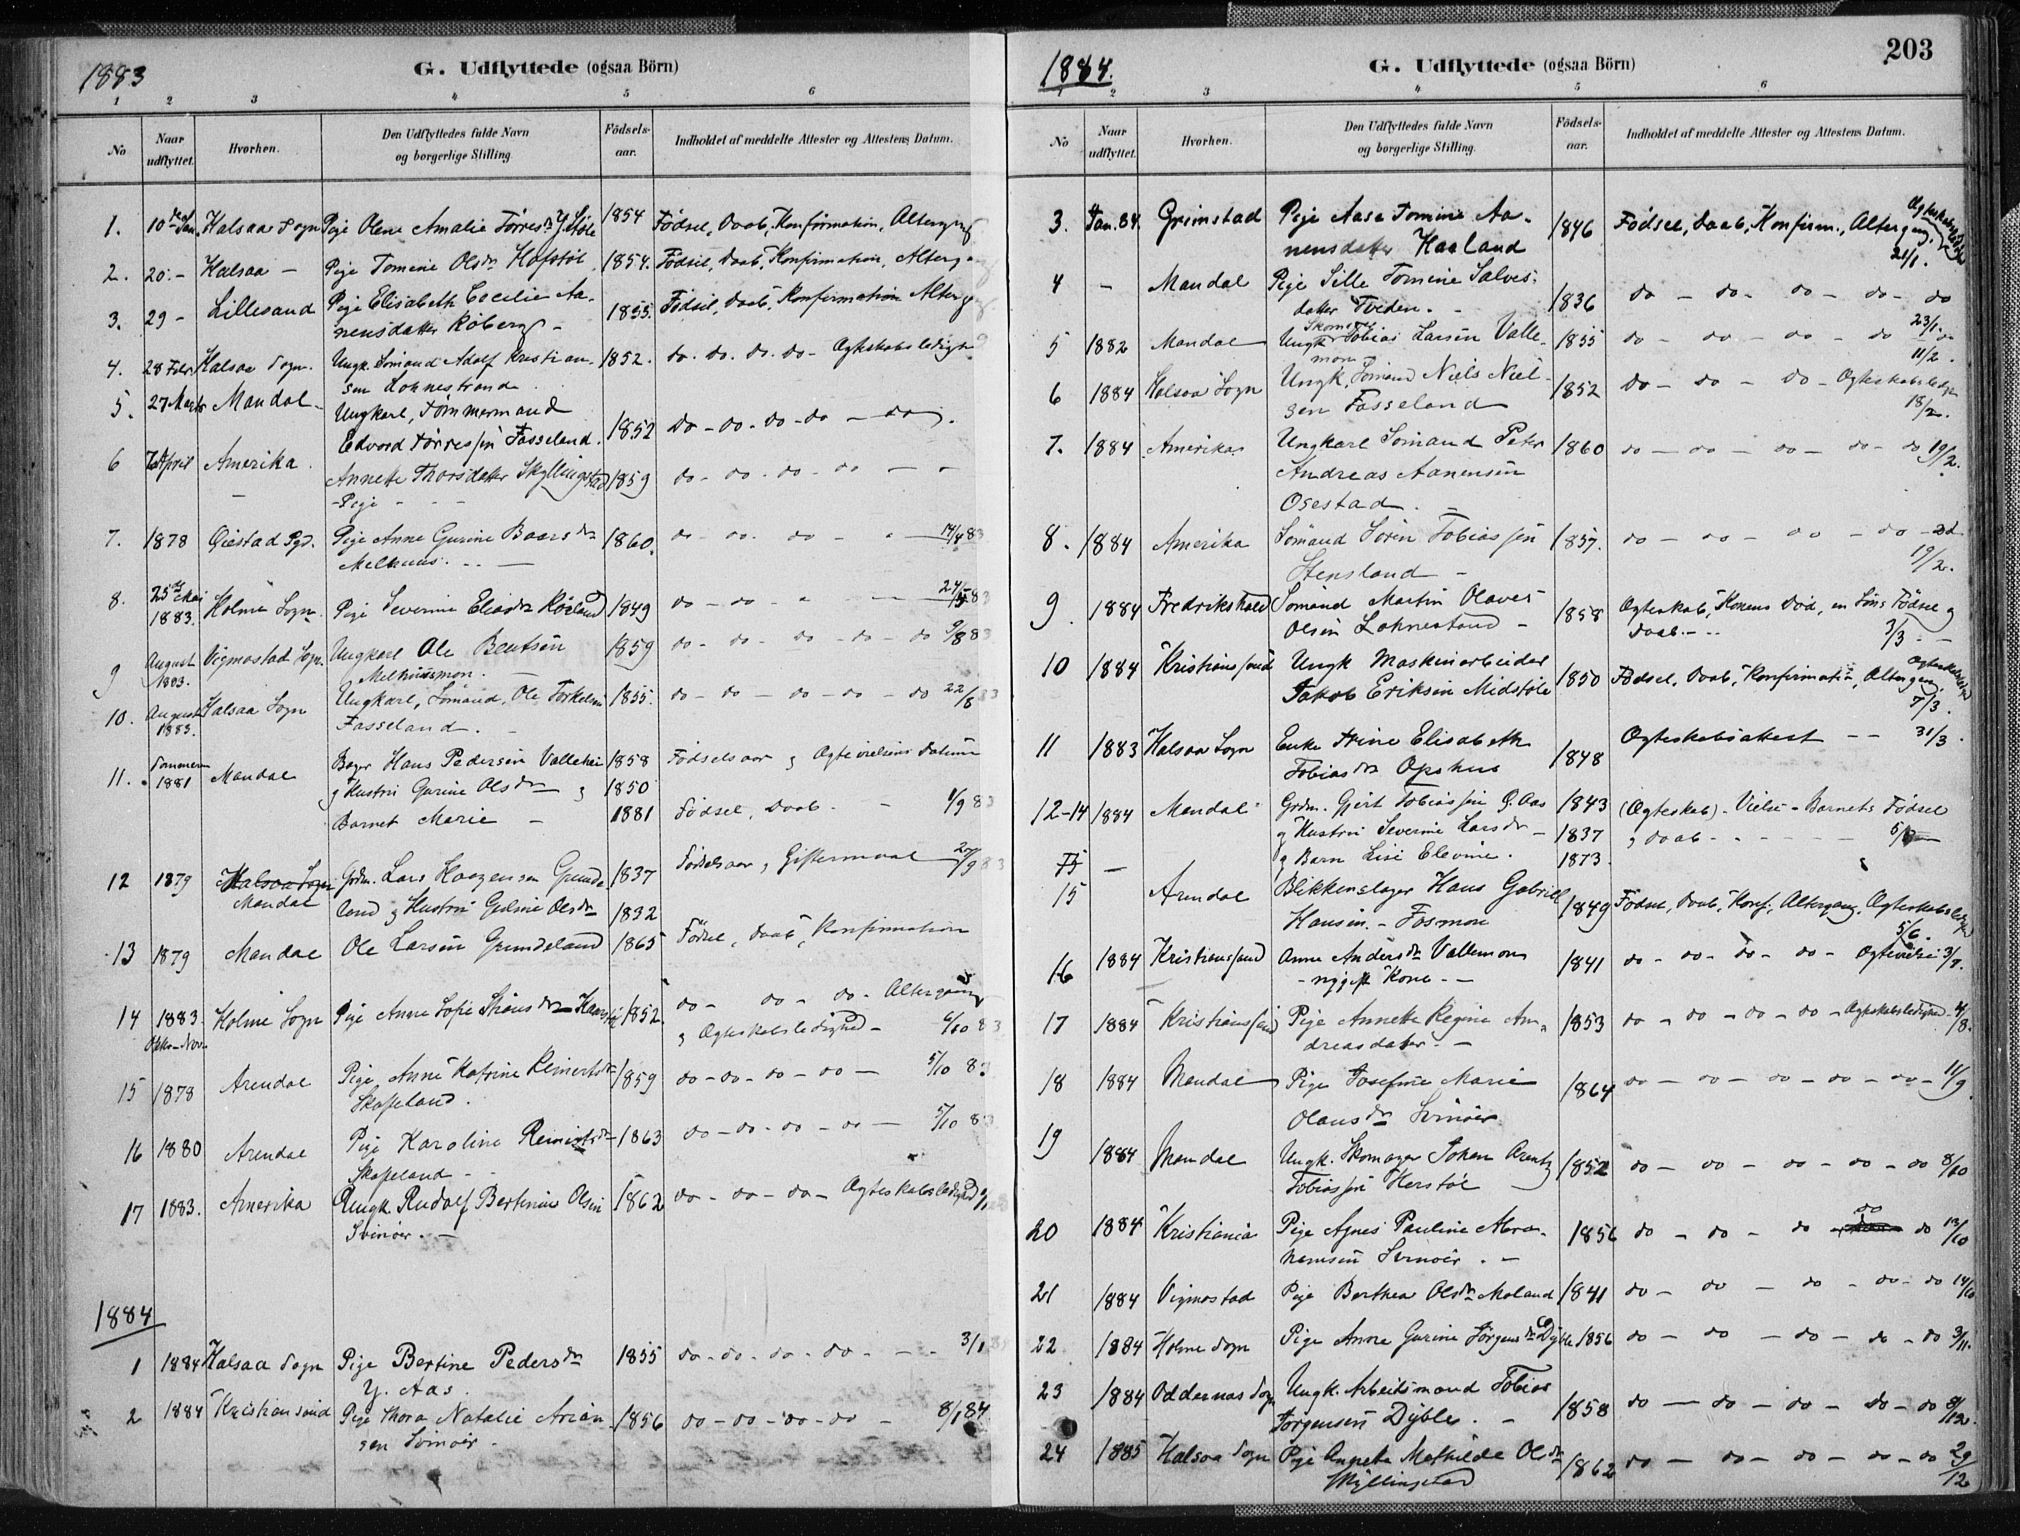 1883
G. Udflyttede (ogsaa Börn)
1 2 3 4 5 6
No
Naar udflyttet.
Hvorhen.
Den Udflyttedes fulde Navn og borgerlige Stilling.
Födsels-aar.
Indholdet af meddelte Attester og Attestens Datum.
1. 10de Jan. Halsaa Sogn Pige Olene Amalie Törresdr Y. Stöle 1854 Födsel, Daab, Konfirmation, Altergang
2. 20 - Halsaa - Pige Tomine Olsdr Hofstöl 1854. Födsel, Daab, Konfirmation, Alterg
3. 29 - Lillesand Pige Elisabeth Cecilie Aa-
nensdatter Köberg - 1855. Födsel, Daab, Konfirmation Alterg
4. 28 Febr Halsaa Sogn. Ungk. Sömand Adolf Kristian-
sen Lohnestrand. 1852. do. do. do. do - Ægteskabsledighd
5. 27 Marts Mandal Ungkarl, Tömmermand
Edvard Törressen Fasseland. 1852 do - do - do - do - do
6 April Amerika. Annette Thorsdatter Skyllingstad 1859 do - do - do - do - -
- Pige - - -
7. 1878 Öiestad Pgd. Pige Anne Gurine Baarsdr 1860. do - do. do - - 14/4 83
Melhuus. - - -
8. 25de Mai 1883. Holme Sogn. Pige Severine Eliasdr Röiland 1849 do - do - - - 24/5 83
9 August 1883. Vigmostad Sogn Ungkarl Ole Bentsen 1859 do - do - do - do - do 9/8 83
Melhuusmon. -
10. August 1883. Halsaa Sogn Ungkarl, Sömand, Ole Torkelsen 1855. do - do - do - do - do 22/8 83
Fasseland. -
11. Sommeren 1881 Mandal Bager Hans Pedersen Vallehei 1858 Födselsaar og Ægtevielsens Datum
og Hustru Gurine Olsdr og 1850
Barnet Marie - 1881 Födsel, Daab - - 1/9 83
12 1879 Halsaa Sogn Mandal Grdm. Lars Haagensen Grunde- 1837 Födselsaar og Giftermaal 20/9 83
land og Hustru Guline Olsdr 1832
13 1879 Mandal Ole Larsen Grundeland 1865 Födsel, Daab, Konfirmation
14 1883. Oktbr - Novbr Holme Sogn Pige Anne Sofie 1852. do - do - do - Altergang
og Ægteskabsledighed - 6/10 83
15 1878 Arendal Pige, Anne Katrine Reinertsdr 1859 do - do - do - do - 5/10 83
Skofteland.
16 1880 Arendal Pige Karoline Reinertsdr 1863 do - do - do - do - 5/10 83
Skofteland -
17 1883. Amerika Ungk. Rudolf Bertinius Olsen 1862 do - do - do - Ægteskabsledighed
Svinöer. -
1884
1 1884 Halsaa Sogn Pige Bertine Pedersdr 1855 do - do - do - do - - - 3/1
Y. Aas.
2 1884 Kristiansand Pige Thora Natalie Arian- 1856 do - do - do - do - 8/1 84
sen Svinöer.
1884.
G. Udflyttede (ogsaa Börn)
203
1 2 3 4 5 6
No
Naar udflyttet.
Hvorhen.
Den Udflyttedes fulde Navn og borgerlige Stilling.
Födsels-aar.
Indholdet af meddelte Attester og Attestens Datum.
3. Jan. 84 Grimstad Pige Aase Tomine Aa-
nensdatter Haaland 1846 Födsel, Daab, Konfirm., Altergang. Ægteskabsledigh 21/1.
4 - Mandal Pige Sille Tomine Salves-
datter Tveden. - 1836 do - do - do - do - do 23/1.
5 1882 Mandal Ungk. Skomager Tobias Larsen Valle-
mon 1855 do - do - do - do - do 11/2.
6 1884 Halsaa Sogn Ungk, Sömand Niels Niel-
sen Fasseland 1852 do - do - do - Ægteskabsledigh 18/2.
7. 1884 Amerika Ungkarl Sömand Peter 1860 do - do - do - do - do 19/2.
Andreas Aanensen
Osestad. -
8. 1884 Amerika Sömand Sören Tobiassen 1837. do - do - do - do - do 19/2.
Stensland -
9. 1884 Fredrikshald Sömand Martin Olaves
Olsen Lohnestand - 1858 Ægteskab, Konens Död, en Söns Födsel og
Daab. - - 3/3 - -
10 1884 Kristiansand Ungk Maskinarbeider
Jakob Eriksen Midstöle 1850 Födsel, Daab, Konfirmation, Altergang, Ægteskabsledighd 7/3.
11 1883 Halsaa Sogn Enke Trine Elisabeth
Tobiasdr Opshus 1848 Ægteskabsattest - - 31/3.
12-14 1884 Mandal Grdm. Gjert Tobiassen Ö. Aas 1843 (Ægteskab) - Vielse - Barnets Födsel
og Hustru Severine Larsdr - 1837 og Daab - - - - 5/
og Barn Lise Elevine. 1873.
15 -
15 Arendal Blikkenslager Hans Gabriel
Hansen. - Fosmon 1849 Födsel, Daab, Konf., Altergang, Ægteskabsledighd 5/6.
16 1884 Kristiansand Anne Andersdr Vallemon
- nygift Kone. - 1841 do - do - do - do - Ægtevielse 3/7.
17 1884 Kristiansand Pige Annette Regine An-
dreasdatter. - 1853 do - do - do - do - Ægteskabsledighed - 4/8.
18 1884 Mandal Pige Josefine Marie 1864 do - do - do - do - do - 11/9.
Olausdr Svinöer
19 1884 Mandal Ungk. Skomager Johan Arentz 1852 do - do - do - do - do 8/10
Tobiassen Herstöl
20 1884 Kristiania Pige Agnes Pauline Abra-
hamsen Svinöer. - 1856 do - do - do do do 13/10
21 1884 Vigmostad Pige Berthea Olsdr Moland 1841 do - do - do - do - do 14/10
22 1884 Holme Sogn Pige Anne Gurine Jörgensdr Dyble 1856 do - do - do - do - do 3/11.
23 1884 Oddernæs Sogn Ungk. Arbeidsmand Tobias
Jörgensen Dyble. - 1858 do - do - do - do - do 8/12.
24 1885 Halsaa Sogn Pige Annette Mathilde Olsdr
Skyllingstad 1862 do - do - do - do - do 29/12